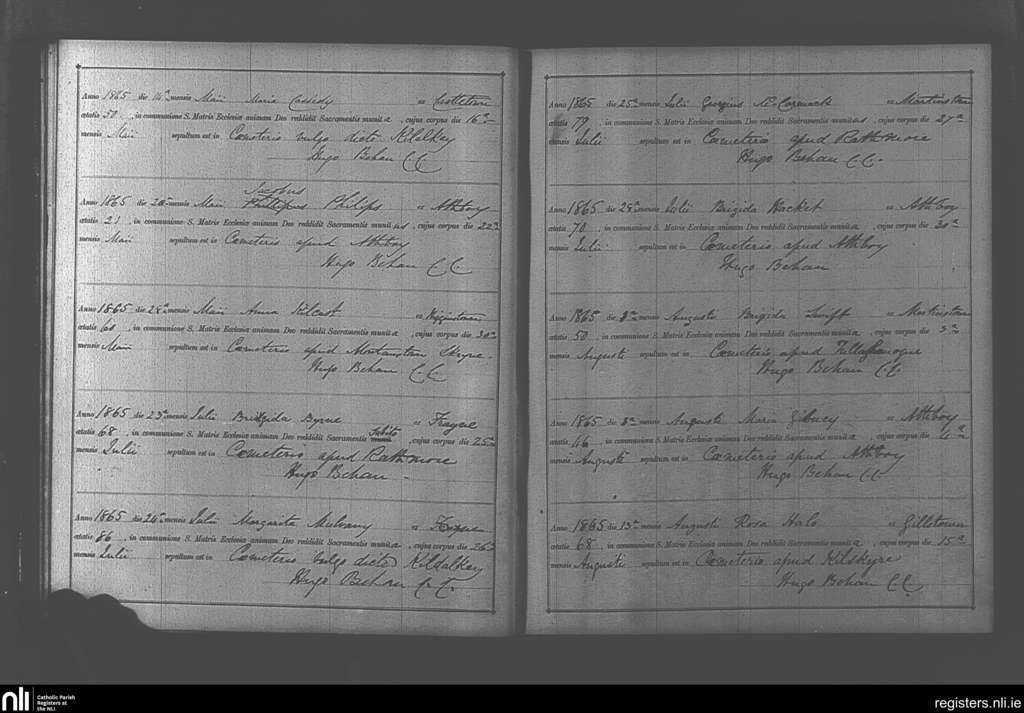 Anno 1865 die 14a mensis Maii Maria Cassidy ex Castletown
ætatis 50, in communione S. Matris Ecclesiæ animam Deo reddidit Sacramentis munita, cujus corpus die 16a
mensis Maii sepultum est in Cœmeterio vulgo dicto Kildalkey
Hugo Behan C.C.
Jacobus
Anno 1865 die mensis Maii Phillipus Philips ex Athboy
ætatis 21, in communione S. Matris Ecclesiæ animam Deo reddidit Sacramentis munitus, cujus corpus die 22a
mensis Maii sepultum est in Cœmeterio apud Athboy
Hugo Behan C.C.
Anno 1865 die 28a mensis Maii Anna ex Higginstown
ætatis 60, in communione S. Matris Ecclesiæ animam Deo reddidit Sacramentis munita, cujus corpus die 30a
mensis Maii sepultum est in Cœmeterio apud Skryne
Hugo Behan C.C.
Anno 1865 die 23a mensis Julii Bridgida Byrne ex Frayne
Subito
ætatis 68, in communione S. Matris Ecclesiæ animam Deo reddidit Sacramentis, cujus corpus die 25a
mensis Julii sepultum est in Cœmeterio apud Rathmore
Hugo Behan
Anno 1865 die 24a mensis Julii Margarita Mulvany ex
ætatis 86, in communione S. Matris Ecclesiæ animam Deo reddidit Sacramentis munita, cujus corpus die 26a
mensis Julii sepultum est in Cœmeterio vulgo dicto Kildalkey
Hugo Behan C.C.
Anno 1865 die 25a mensis Julii Georgius McCormack ex Martinstown
ætatis 79, in communione S. Matris Ecclesiæ animam Deo reddidit Sacramentis munitus, cujus corpus die 27a
mensis Julii sepultum est in Cœmeterio apud Rathmore
Hugo Behan C.C.
Anno 1865 die 28a mensis Julii Brigida Hacket ex Athboy
ætatis 70, in communione S. Matris Ecclesiæ animam Deo reddidit Sacramentis munita, cujus corpus die 30a
mensis Julii sepultum est in Cœmeterio apud Athboy
Hugo Behan
Anno 1865 die mensis Augusti Brigida Swift ex Martinstown
ætatis 50, in communione S. Matris Ecclesiæ animam Deo reddidit Sacramentis munita, cujus corpus die 3a
mensis Augusti sepultum est in Cœmeterio apud Tullaghanogue
Hugo Behan C.C.
Anno 1865 die mensis Augusti Maria Gibney ex Athboy
ætatis 46, in communione S. Matris Ecclesiæ animam Deo reddidit Sacramentis munita, cujus corpus die 4a
mensis Augusti sepultum est in Cœmeterio apud Athboy
Hugo Behan C.C.
Anno 1865 die 13a mensis Augusti Rosa Halo ex Gillstown
ætatis 68, in communione S. Matris Ecclesiæ animam Deo reddidit Sacramentis munita, cujus corpus die 15a
mensis Augusti sepultum est in Cœmeterio apud Kilskyre
Hugo Behan C.C.
nli
Catholic Parish
Registers at
the NLI
registers.nli.ie